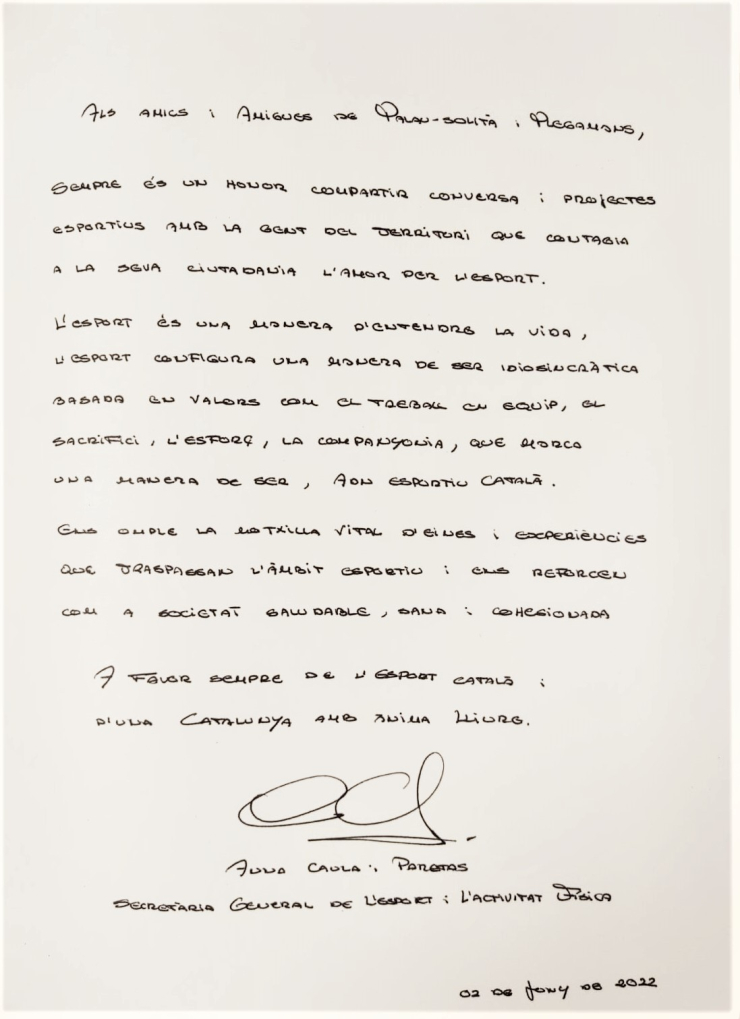 Als amics i Amigues de Palau-solità i Plegamans,
Sempre és un honor compartir conversa i projectes
esportius amb la gent del territori que contagia
a la seva ciutadania l'amor per l'esport.
L'esport és una manera d'entendre la vida,
l'esport configura una manera de ser idiosincràtica
basada en valors com el treball en equip, el
sacrifici, l'esforç, la companyonia, que marca
una manera de ser, ADN esportiu català.
Ens omple la motxilla vital d'eines i experiències
que traspassan l'àmbit esportiu i ens reforcen
com a societat saludable, sana i cohesionada
A favor sempre de l'esport català i
d'una Catalunya amb ànima lliure.
Anna Caula i Paretas
Secretària General de l'esport i l'activitat Física
02 de juny de 2022